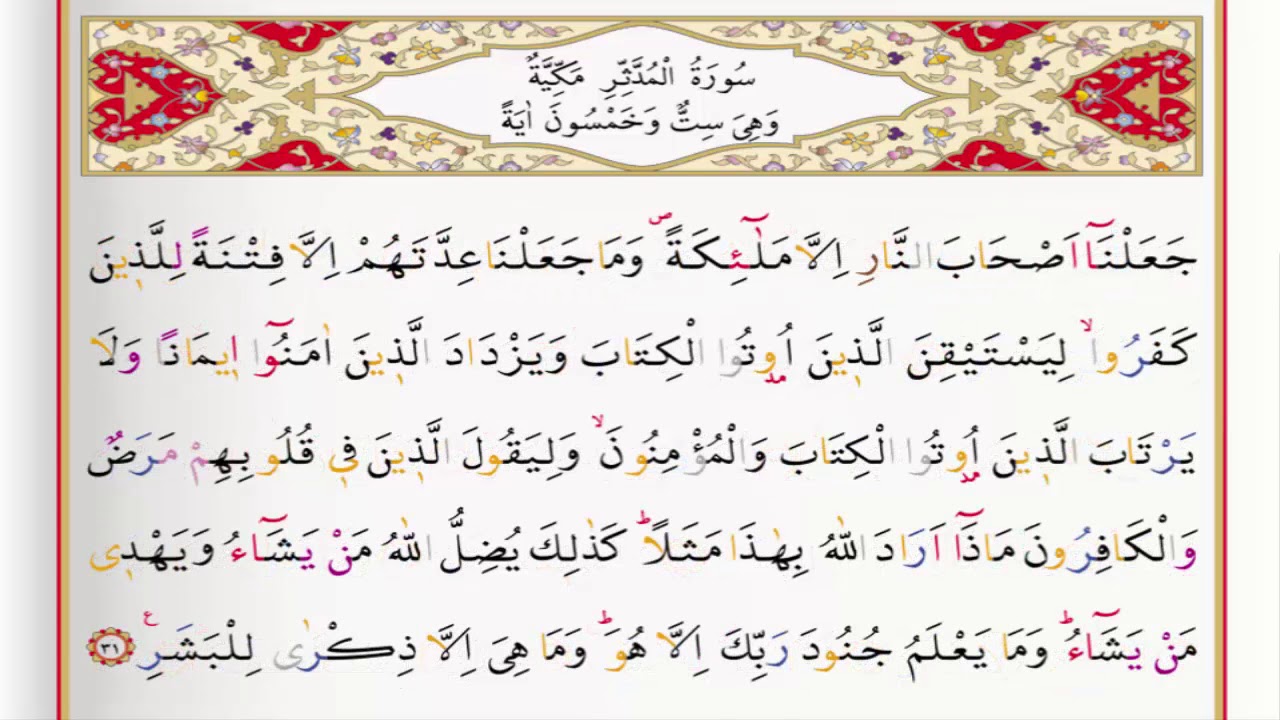 سُورَةُ الْمُدَّثِّرِ مَكِّيَّةٌ
وَهِىَ سِتٌّ وَخَمْسُونَ اٰيَةً
جَعَلْنَٓا اَصْحَابَ النَّارِ اِلَّا مَلٰٓئِكَةًۖ وَمَا جَعَلْنَا عِدَّتَهُمْ اِلَّا فِتْنَةً لِلَّذ۪ينَ
كَفَرُواۙ لِيَسْتَيْقِنَ الَّذ۪ينَ اُو۫تُوا الْكِتَابَ وَيَزْدَادَ الَّذ۪ينَ اٰمَنُٓوا ا۪يمَانًا وَلَا
يَرْتَابَ الَّذ۪ينَ اُو۫تُوا الْكِتَابَ وَالْمُؤْمِنُونَۙ وَلِيَقُولَ الَّذ۪ينَ ف۪ى قُلُوبِهِمْ مَرَضٌ
وَالْكَافِرُونَ مَاذَٓا اَرَادَ اللّٰهُ بِهٰذَا مَثَلًاۜ كَذٰلِكَ يُضِلُّ اللّٰهُ مَنْ يَشَٓاءُ وَيَهْد۪ى
مَنْ يَشَٓاءُۜ وَمَا يَعْلَمُ جُنُودَ رَبِّكَ اِلَّا هُوَۜ وَمَا هِىَ اِلَّا ذِكْرٰى لِلْبَشَرِ۟ ٣١